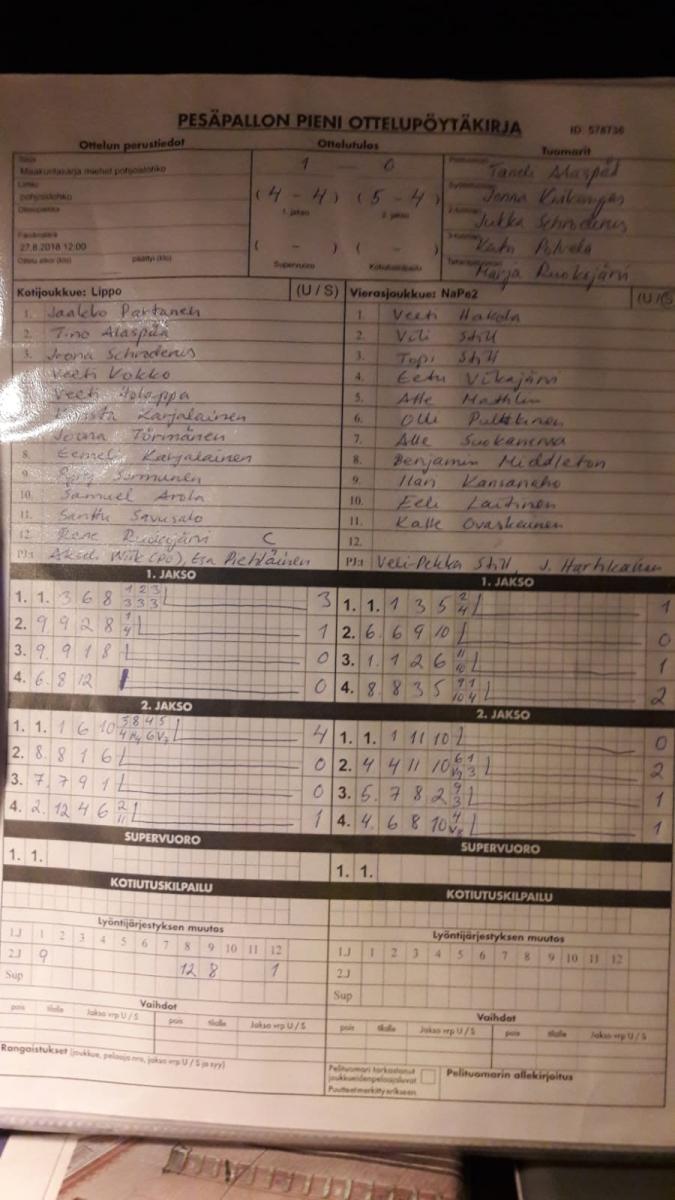 PESÄPALLON PIENI OTTELUPÖYTÄKIRJA ID: 578736
Ottelun perustiedot Ottelutulos Tuomarit
Maakuntasarja miehet pohjoislohko 1 0
Lohko
pohjoislohko (4 - 4) (5 - 4) Jonna
1. jakso 2. jakso Jukka Schroderus
27.8.2018 12:00 ( - ) ( - ) Katu Polvela
Ottelu alkoi (klo) päättyi (klo) Supervuoro Kotiutuskilpailu Marja Ruokojärvi
Kotijoukkue: Lippo (U / S) Vierasjoukkue: NaPe2 (U/S
1. Jaakko Partanen 1. Veeti Hakola
2. Tino Alaspää 2. Vili Still
3. Joona Schroderus 3. Topi Still
Veeti Vokko 4. Eetu Vikajärvi
Veeti 5. Atte
Karjalainen 6. Olli Pulkkinen
Joona Törmänen 7. Alle Suokanerva
8. Eemeli Karjalainen 8. Benjamin Middleton
9. Sormunen 9. Ilari Kansanaho
10. Samuel Arola 10. Eeli Laitinen
11. Santtu Savusalo 11. Kalle Ovaskainen
12. Rene C 12.
PJ:t Akseli Wiik (PO), Esa Pietiläinen PJ:t Veli-Pekka Still, J. Hartikainen
1. JAKSO 1. JAKSO
1. 1. 3 6 8 1/3 2/3 3/3 3 1. 1. 1 3 5 2/4 1
2. 9 9 2 8 1/4 1 2. 6. 6 9 10 0
3. 9. 9 1 8 0 3. 1. 1 2 6 11/10 1
4. 6. 8 12 0 4. 8. 8 3 5 9/10 1/4 2
2. JAKSO 2. JAKSO
1. 1. 1 6 10 4 1. 1. 1 11 10 0
2. 8. 8 1 6 0 2. 4 4 11 10 2
3. 7. 7 9 1 0 3. 5. 7 8 2 9/3 1
4. 2. 12 4 6 2/11 1 4. 4. 6 8 10 1
SUPERVUORO SUPERVUORO
1. 1. 1. 1.
KOTIUTUSKILPAILU KOTIUTUSKILPAILU
Lyöntijärjestyksen muutos Lyöntijärjestyksen muutos
1.J 1 2 3 4 5 6 7 8 9 10 11 12 1.J 1 2 3 4 5 6 7 8 9 10 11 12
2.J 9 12 8 1 2.J
Sup Sup
Vaihdot Vaihdot
pois tilalle Jakso vrp U / S pois tilalle Jakso vrp U / S pois tilalle Jakso vrp U / S pois tilalle Jakso vrp U / S
Rangaistukset (joukkue, pelaaja nro, jakso vrp U / S ja syy) Pelituomari tarkastanut joukkueiden pelaajaluvat Pelituomarin allekirjoitus
Puutteet merkitty erikseen